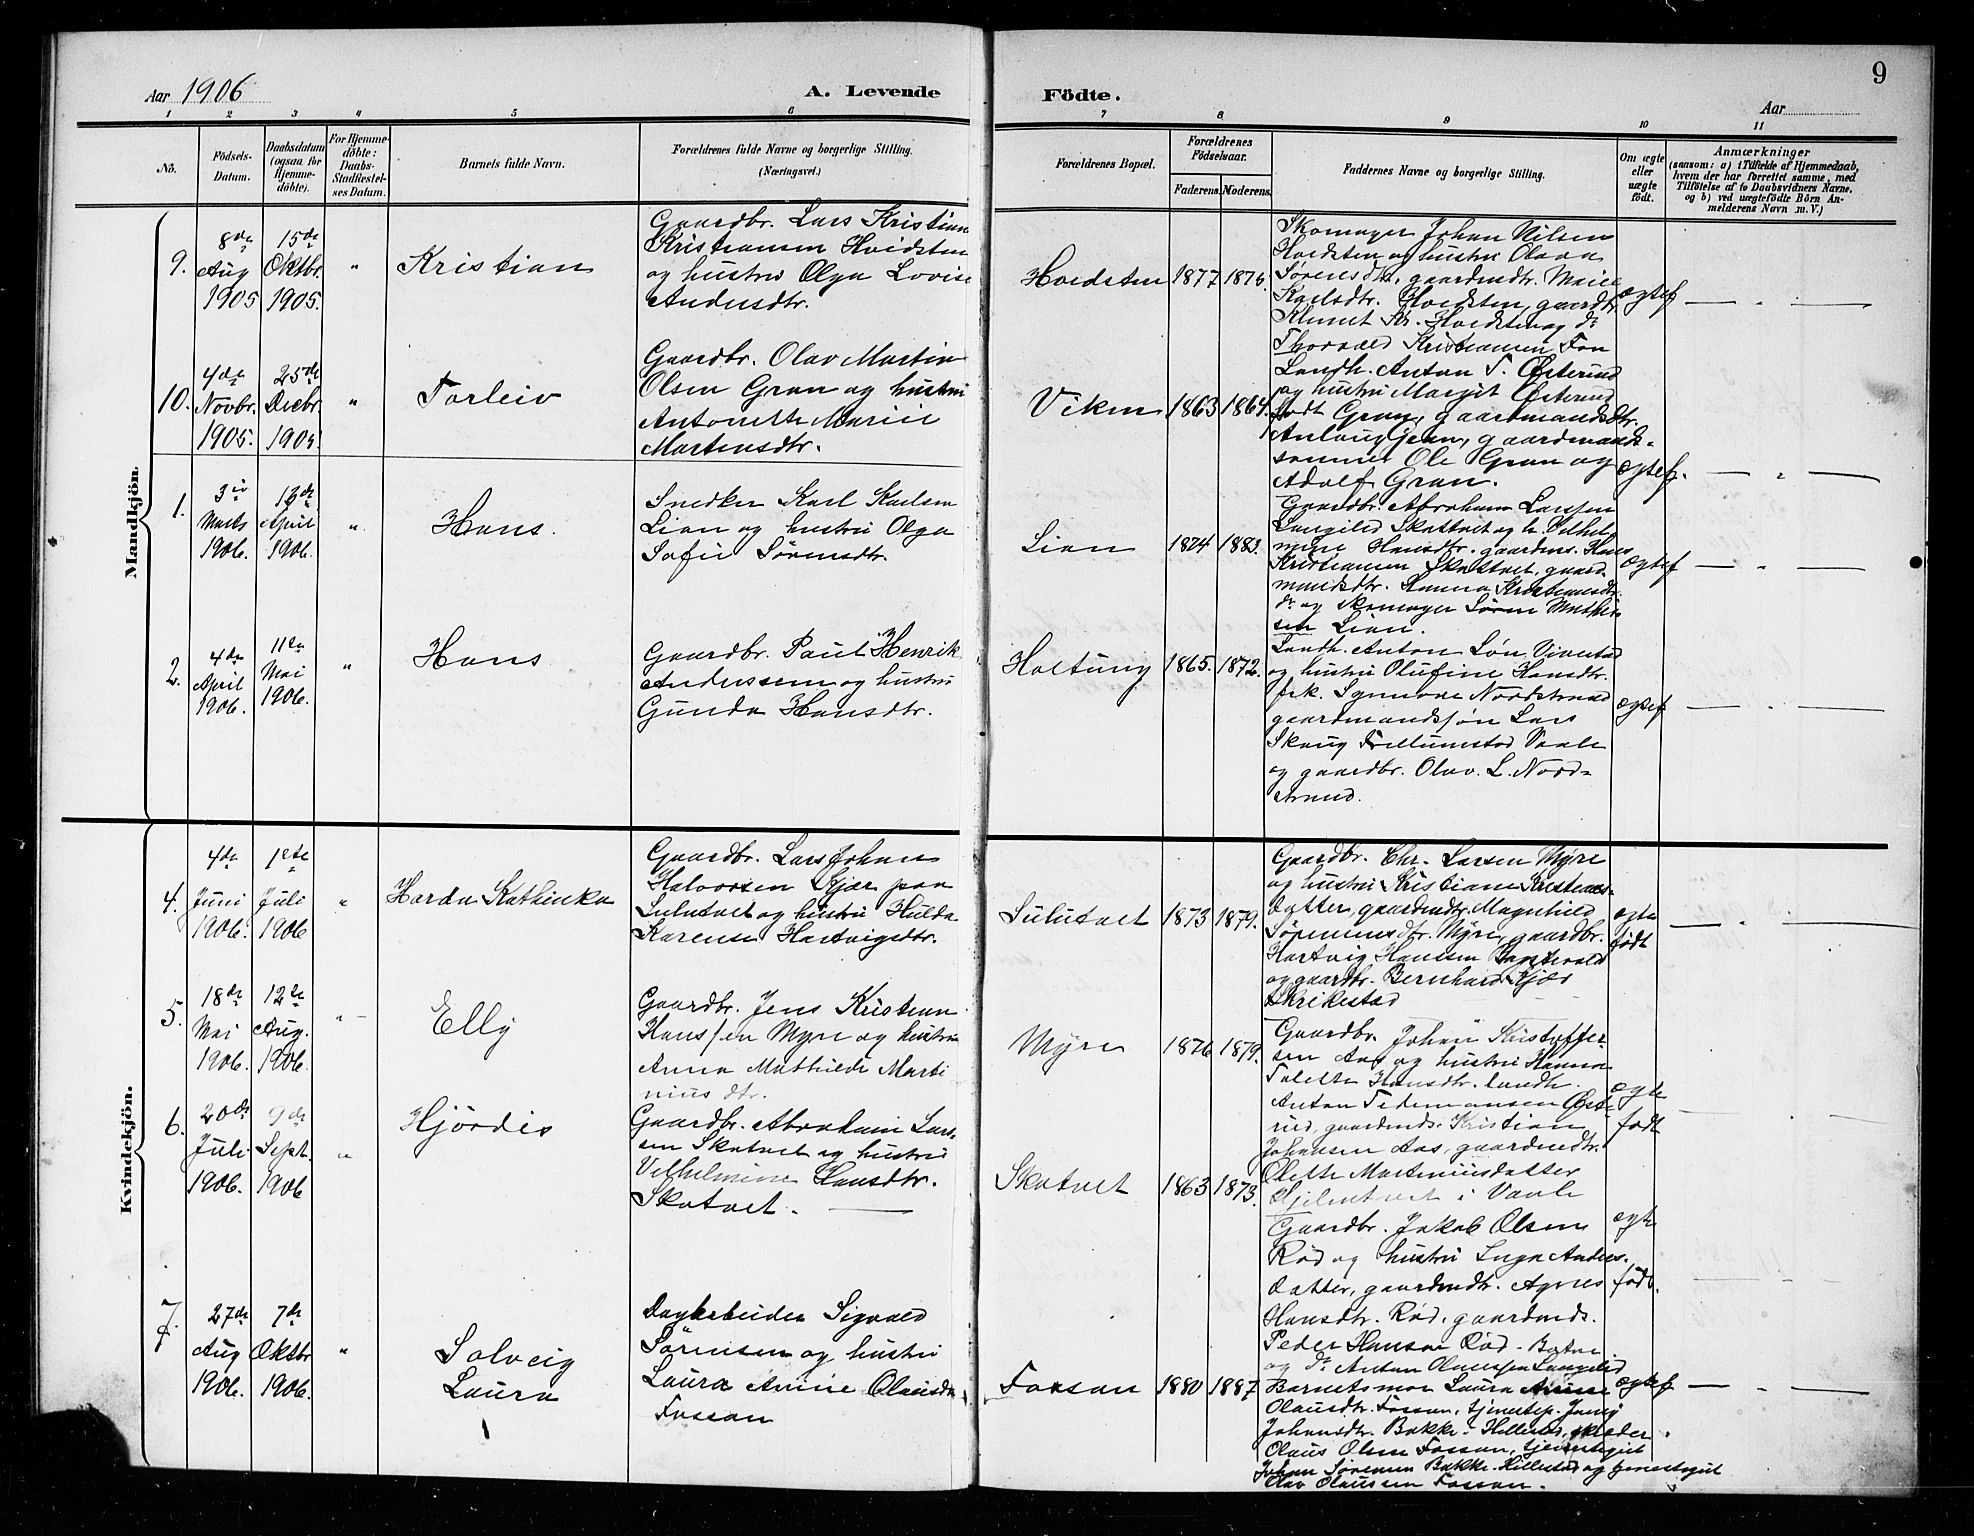 Aar 1906
A. Levende
Födte.
9
Aar
1 2 3 4 5 6 7 8 9 10 11
No.
Födsels-Datum.
Daabsdatum (ogsaa for Hjemmedöbte).
For Hjemmedöbte: Daabs-Stadfæstelses Datum.
Barnets fulde Navn.
Forældrenes fulde Navne og borgerlige Stilling.
(Næringsvei.)
Forældrenes Bopæl.
Forældrenes Födselsaar.
Faderens. Moderens.
Faddernes Navne og borgerlige Stilling.
Om ægte eller uægte födt.
Anmærkninger
(saasom: a) i Tilfælde af Hjemmedaab,
hvem der har forrettet samme, med
Tilföielse af to Daabsvidners Navne,
og b) ved uægtefödte Börn An-
melderens Navn m. V.)
Mandkjön.
9.
8de Aug 1905
15de Oktbr. 1905.
"
Kristian
Gaardbr. Lars Kristian
Kristiansen Hvidsten
og hustru Olga Lovise
Andersdtr.
Hvidsten
1877
1876.
Skomager Johan Nilsen
Hvidsten og hustru Olava
Sørensdtr., gaardmdtr. Marie
Karlsdtr. Hvidsten, gaardbr.
Klemet Kr. Hvidsten og do
Thorvald Kristiansen Fon
ægtef
10.
4de Novbr. 1905.
25de Decbr. 1905
"
Torleiv
Gaardbr. Olav Martin
Olsen Gran og hustru
Antonette Marie
Martensdtr.
Viken
1863
1864.
Landh. Anton T. Østerud
og hustru Margit Østerud
født Gran, gaardmandsdtr.
Anlaug Gran, gaardmands-
sønner Ole Gran og
Adolf Gran.
ægtef.
1.
3die Marts 1906.
13de April 1906.
"
Hans.
Snedker Karl Karlsen
Lian og hustru Olga
Sofie Sørensdtr.
Lian
1874
1883.
Gaardbr. Abraham Larssen
Langelid Skatvet og h. Vilhel
mine Hansdtr. gaardms. Hans
Kristiansen Skatvet, gaard
mandsdtr. Hanna Kristiansdtr.
do og Skomager Søren Mathi
sen Lian.
ægtef
2.
4de April 1906.
11te Mai 1906.
"
Hans
Gaardbr. Paul Henrik
Anderssen og hustru
Gunda Hansdtr.
Holtung
1865.
1872.
Landh. Anton Løn Vivestad
og hustru Olufine Hansdtr.
frk. Synnøve Nordstrand
gaardmandssøn Lars
Skaug Trellumstad Vaale
og gaardbr. Olav. L. Nord-
strand.
ægtef
Kvindekjön.
4.
4de Juni 1906.
1ste Juli 1906
"
Harda Kathinka
Gaardbr. Lars Johan
Halvorsen Kjær paa
Sulutvet og hustru Hulda
Karense Hartvigsdtr.
Sulutvet
1873
1879.
Gaardbr. Chr. Larsen Myre
og hustru Kristiane Kristians-
datter, gaardmdtr. Magnhild
Sørensensdtr. Myre, gaardbr.
Hartvig Hanssen
og gaardbr. Bernhard Kjær
Skrikestad
ægte
født
5.
18de Mai 1906.
12te Aug. 1906.
"
Elly
Gaardbr. Jens Kristian
Hanssen Myre og hustru
Anna Mathilde Marti
nius dtr.
Myre
1876
1879.
Gaardbr. Johan Kristoffer-
sen Aas og hustru Hanna
Hansdtr. landh.
Anton Tedemansen Øste-
rud, gaardmds. Kristian
Johansen Aas, gaardmdtr.
Olette Martiniusdatter
i Vaale
ægte
født
6.
20de Juli 1906.
9de Sept. 1906
"
Hjördis
Gaardbr. Abraham Lars-
sen Skatvet og hustru
Vilhelmine Hansdtr.
Skatvet.
Skatvet
1863
1873.
Gaardbr. Jakob Olsen
Rød og hustru Inga Anders.
datter, gaardmdtr. Agnes
Hansdtr. Rød, gaardmds.
Peder Hansen Rød - Botne
og do Anton Olaussen Langelid
ægte
født.
7.
27de Aug 1906.
7de Oktbr 1906.
"
Solveig
Laura
Dagarbeider Sigvald
Sörensen og hustru
Laura Amine Olausdtr.
Fossan
Fossan
1880
1887
Barnets mor Laura Amine
Olausdtr. Fossan, tjenestep. Jenny
Johansdtr. Bakke - Hillestad, skræder
Olaus Olsen Fossan, tjenestegut
Johan Sørensen Bakke - Hillestad og tjenestegut
Olav Olaussen Fossan.
ægtef